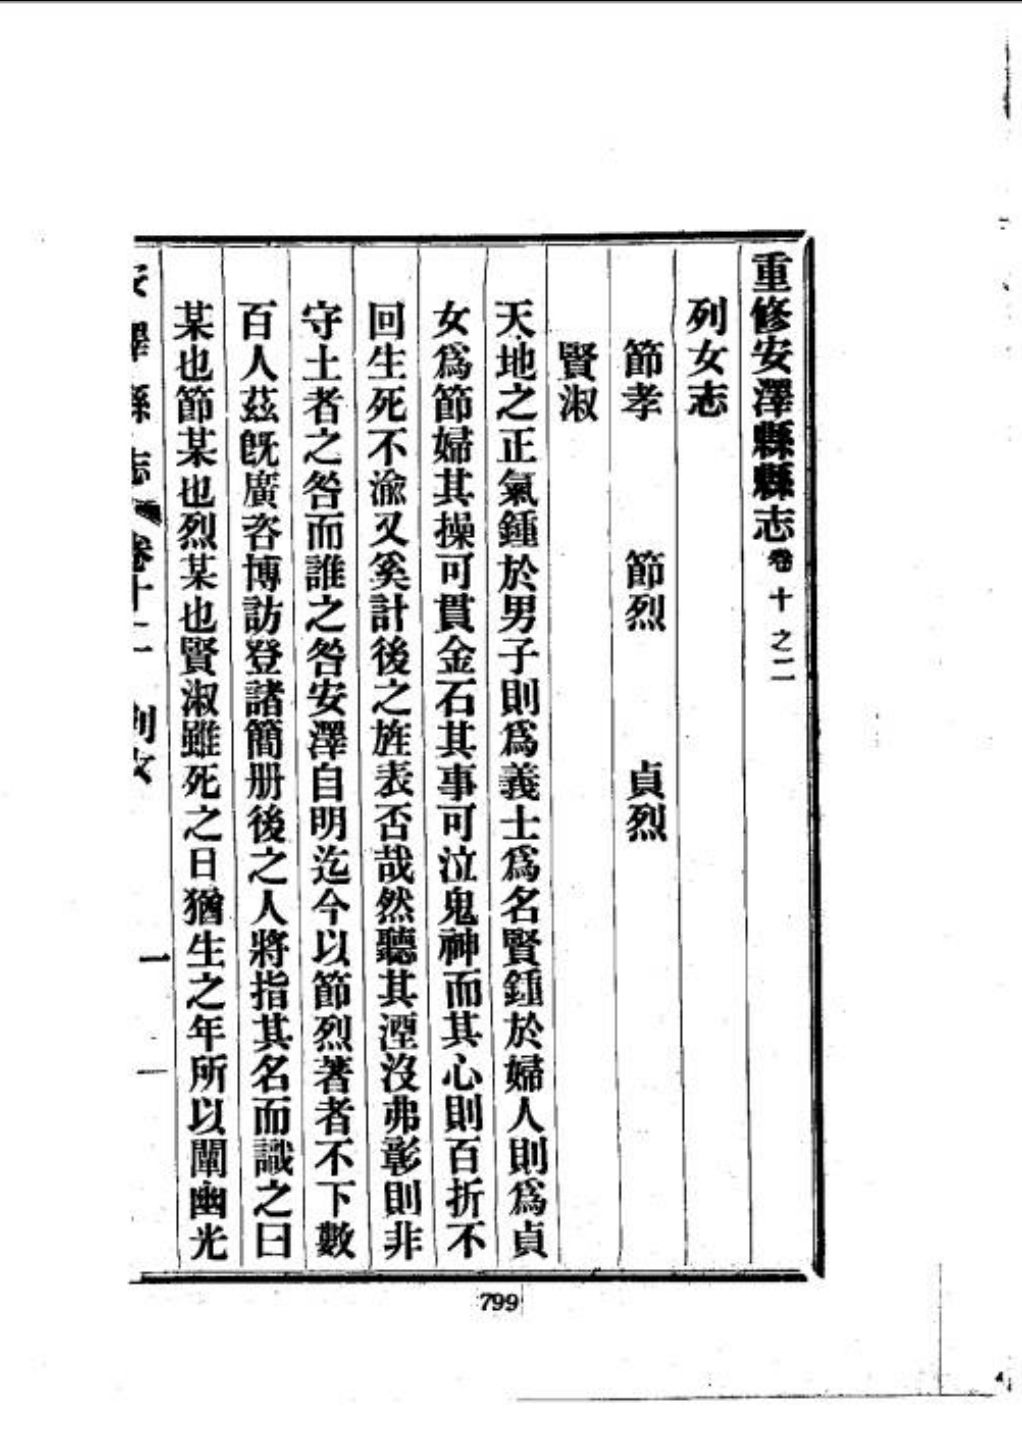 重修安澤縣縣志卷十之二
列女志
節孝　節烈　貞烈
賢淑
天地之正氣鍾於男子則爲義士爲名賢鍾於婦人則爲貞
女爲節婦其操可貫金石其事可泣鬼神而其心則百折不
回生死不渝又奚計後之旌表否哉然聽其湮沒弗彰則非
守土者之咎而誰之咎安澤自明迄今以節烈著者不下數
百人茲既廣咨博訪登諸簡册後之人將指其名而識之曰
某也節某也烈某也賢淑雖死之日猶生之年所以闡幽光
安澤縣志 卷十二 列女 一
799